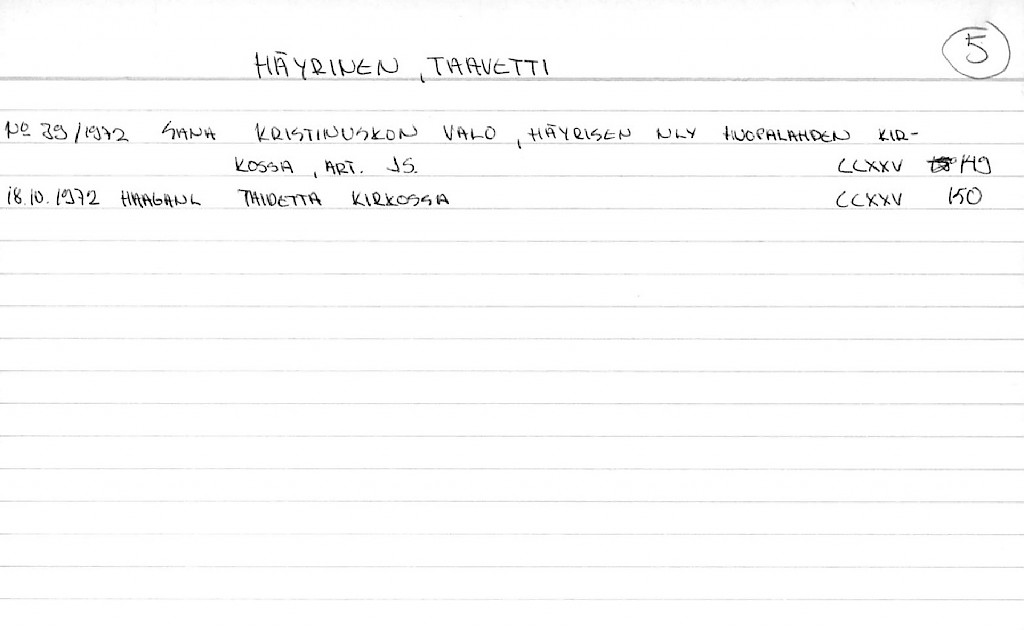 5
HÄYRINEN, TAAVETTI
No 39/1972 SANA KRISTINUSKON VALO, HÄYRISEN NLY HUOPALAHDEN KIR-
KOSSA, ART. JS. CCXXV 149
18.10.1972 HAAGANL TAIDETTA KIRKOSSA CCXXV 150